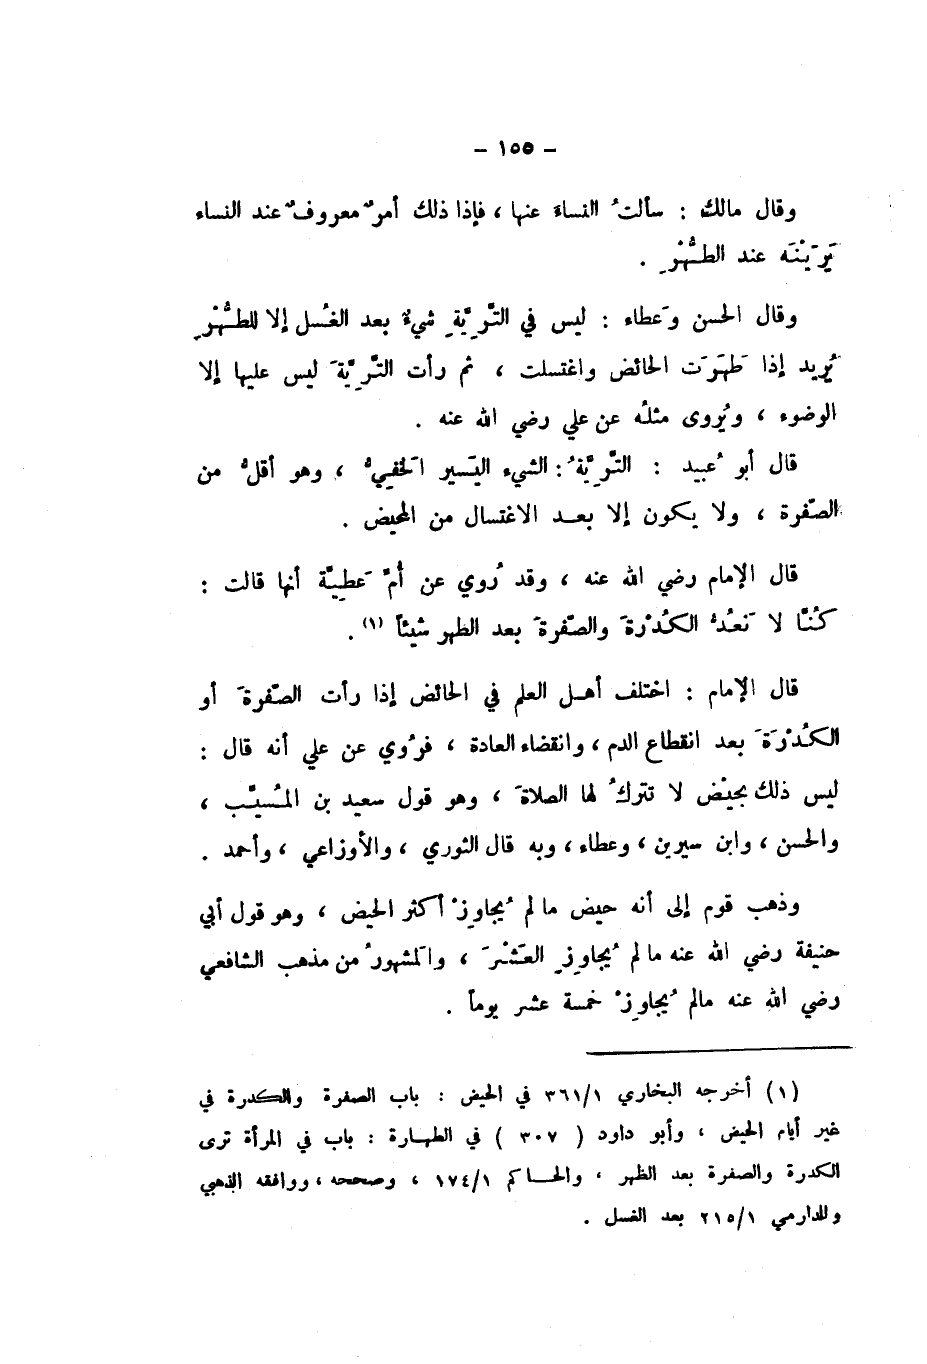 - ١٥٥ -
وقال مالك : سألتُ النساءَ عنها ، فإذا ذلك أمرٌ معروفٌ عند النساء
يَرَيْنَه عند الطُّهْرِ .
وقال الحسن وَعطاء : ليس في التَّرِيَّةِ شيءٌ بعد الغُسل إلا للطُّهْرِ
يُريد إذا طَهَرَت الحائض واغتسلت ، ثم رأت التَّرِيَّةَ ليس عليها إلا
الوضوء ، ويُروى مثلُه عن علي رضي الله عنه .
قال أبو عُبيد : التَّرِيَّةُ : الشيء اليَسير الَخفِيُّ ، وهو أقلُّ من
الصّفرة ، ولا يكون إلا بعد الاغتسال من المحيض .
قال الإمام رضي الله عنه ، وقد رُوي عن أُمّ عَطِيّة أنها قالت :
كُنّا لا نَعُدُّ الكُدْرةَ والصّفرةَ بعد الطهر شيئاً (١) .
قال الإمام : اختلف أهل العلم في الحائض إذا رأت الصّفرةَ أو
الكُدْرَةَ بعد انقطاع الدم ، وانقضاء العادة ، فرُوي عن علي أنه قال :
ليس ذلك بحيْض لا تتركُ لها الصلاةَ ، وهو قول سعيد بن المُسيَّب ،
والحسن ، وابن سيرين ، وعطاء ، وبه قال الثوري ، والأوزاعي ، وأحمد .
وذهب قوم إلى أنه حيض ما لم يُجاوِزْ أكثر الحيض ، وهو قول أبي
حنيفة رضي الله عنه ما لم يُجاوِزِ العَشْرَ ، والَمشهورُ من مذهب الشافعي
رضي الله عنه مالم يُجاوِزْ خمسة عشر يوماً .
(١) أخرجه البخاري ٣٦١/١ في الحيض : باب الصفرة والكدرة في
غير أيام الحيض ، وأبو داود ( ٣٠٧ ) في الطهارة : باب في المرأة ترى
الكدرة والصفرة بعد الظهر ، والحاكم ١٧٤/١ ، وصححه ، ووافقه الذهبي
وللدارمي ٢١٥/١ بعد الغسل .